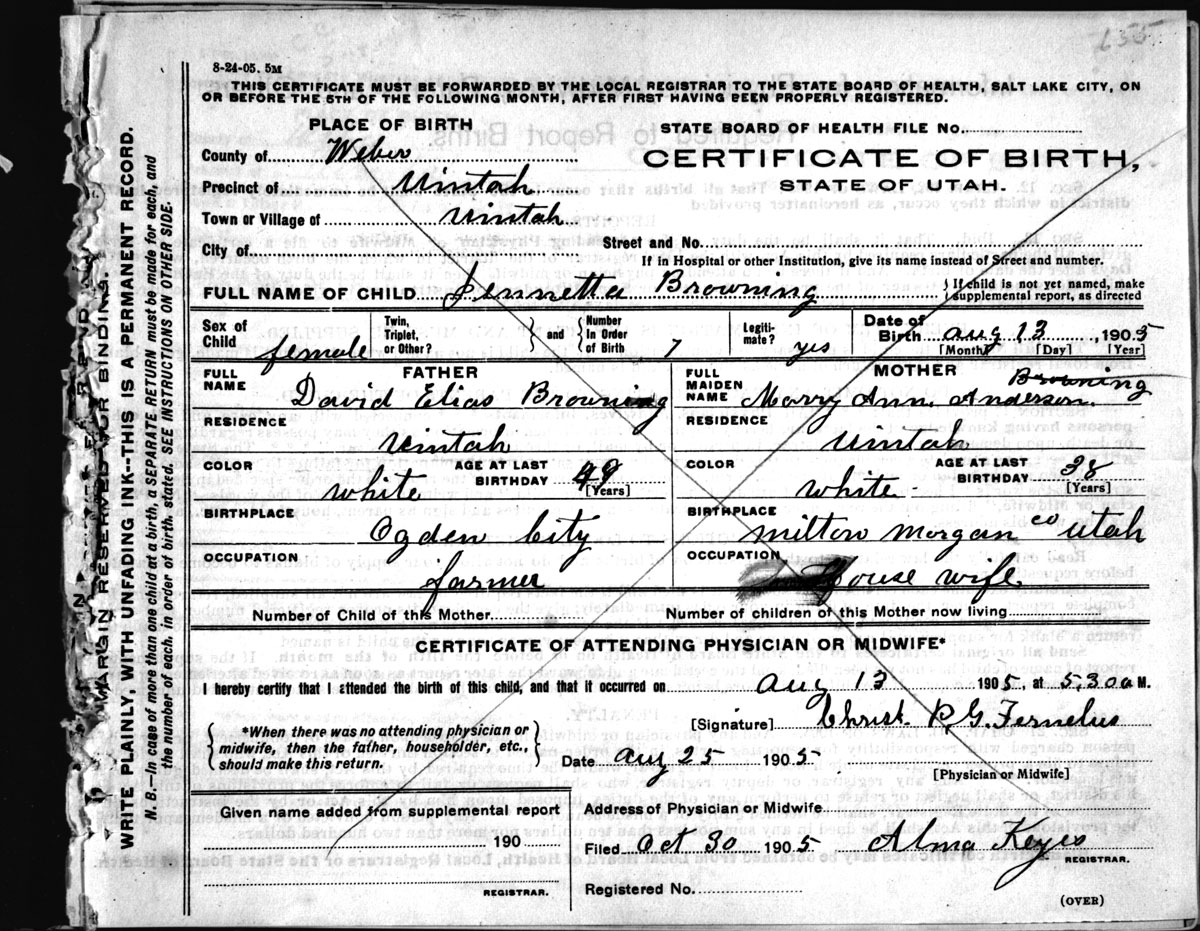 655
8-24-05. 5M
THIS CERTIFICATE MUST BE FORWARDED BY THE LOCAL REGISTRAR TO THE STATE BOARD OF HEALTH, SALT LAKE CITY, ON
OR BEFORE THE 5TH OF THE FOLLOWING MONTH, AFTER FIRST HAVING BEEN PROPERLY REGISTERED.
PLACE OF BIRTH
STATE BOARD OF HEALTH FILE No.
County of Weber
CERTIFICATE OF BIRTH,
STATE OF UTAH.
Precinct of Uintah
Town or Village of Uintah
City of
Street and No.
If in Hospital or other Institution, give its name instead of Street and number.
FULL NAME OF CHILD Jennetta Browning } If child is not yet named, make
supplemental report, as directed
Sex of Child female Twin, Triplet, or Other? } and { Number In Order of Birth 7 Legiti- mate? yes Date of Birth Aug 13, 1905
[Month] [Day] [Year]
FATHER
MOTHER
FULL NAME David Elias Browning
FULL MAIDEN NAME Marry Ann. Anderson. Browning
RESIDENCE Uintah
RESIDENCE Uintah
COLOR white AGE AT LAST BIRTHDAY 49 [Years]
COLOR white AGE AT LAST BIRTHDAY 38 [Years]
BIRTHPLACE Ogden City
BIRTHPLACE Milton Morgan co Utah
OCCUPATION farmer
OCCUPATION House wife.
Number of Child of this Mother
Number of children of this Mother now living
CERTIFICATE OF ATTENDING PHYSICIAN OR MIDWIFE*
I hereby certify that I attended the birth of this child, and that it occurred on Aug 13 1905, at 5.30 a M.
{ *When there was no attending physician or midwife, then the father, householder, etc., should make this return. }
[Signature] Christ. P. G. Fernelius
Date Aug 25 1905.
[Physician or Midwife]
Given name added from supplemental report
190
REGISTRAR.
Address of Physician or Midwife
Filed Oct 30 1905 Alma Keyes
REGISTRAR.
Registered No.
(OVER)
MARGIN RESERVED FOR BINDING.
WRITE PLAINLY, WITH UNFADING INK--THIS IS A PERMANENT RECORD.
N. B.—In case of more than one child at a birth, a SEPARATE RETURN must be made for each, and
the number of each, in order of birth, stated. SEE INSTRUCTIONS ON OTHER SIDE.